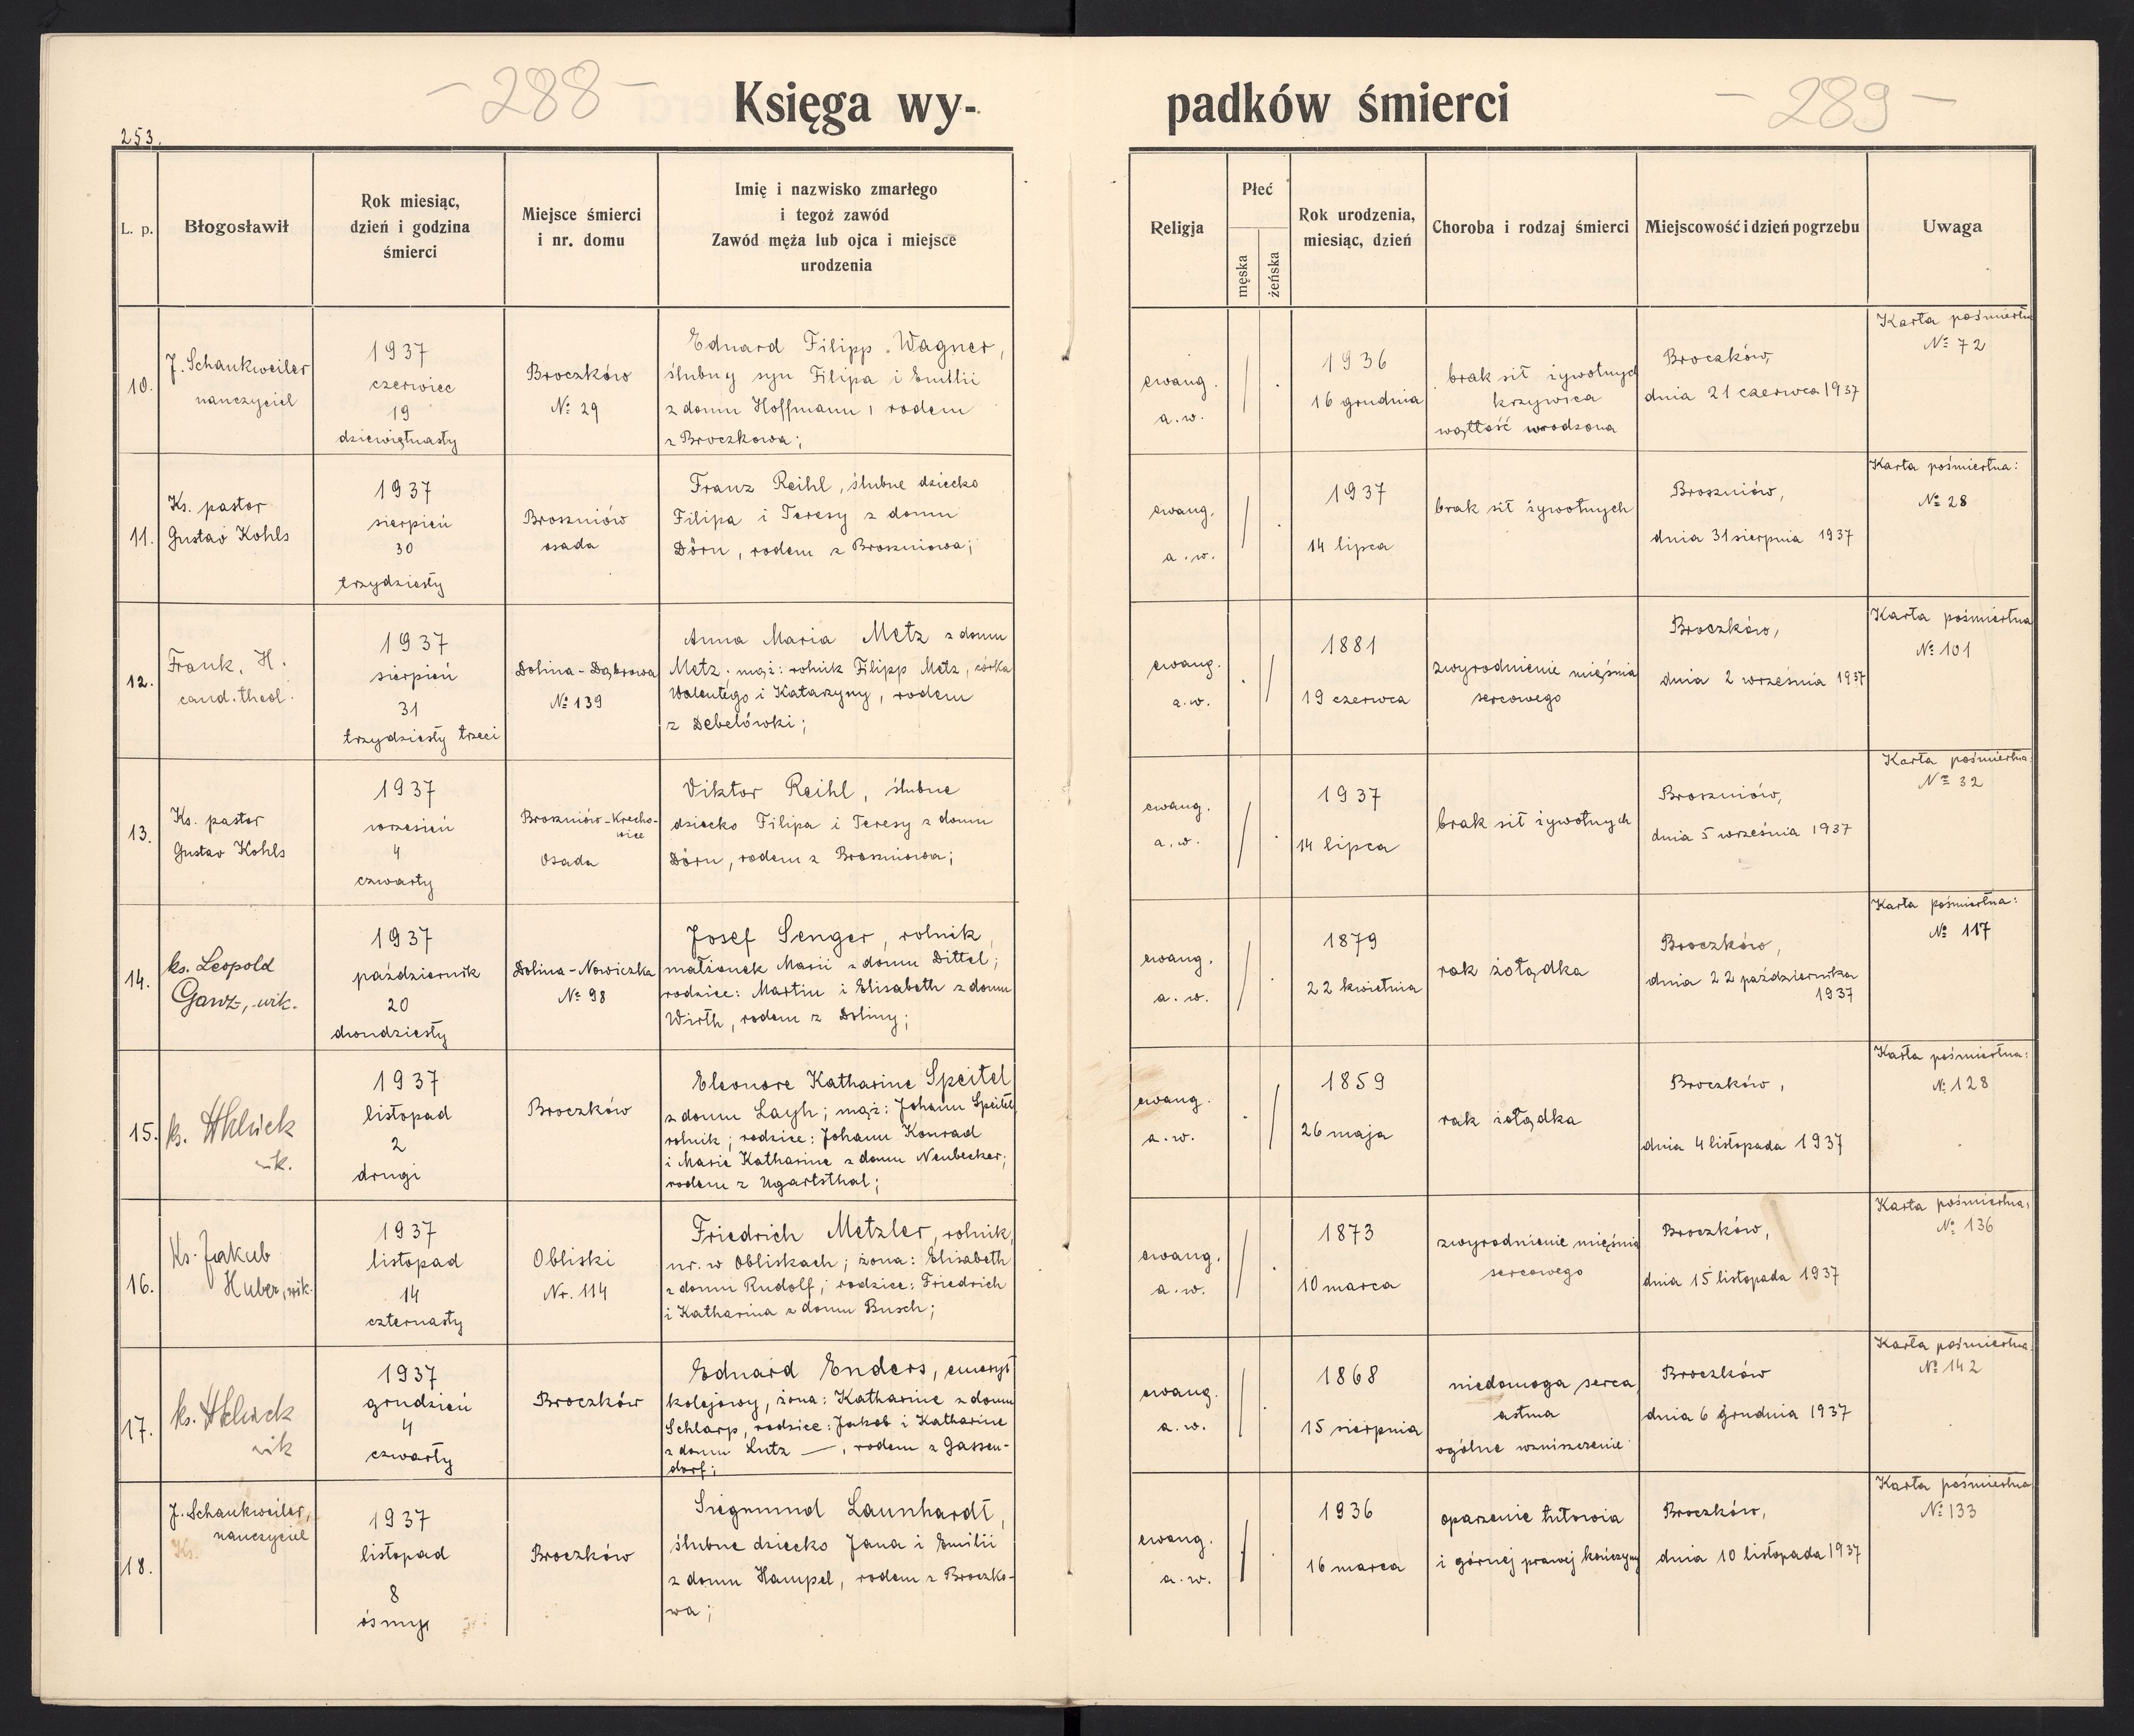 - 288 -
Księga wy-
padków śmierci
- 289 -
253.
L. p.
Błogosławił
Rok miesiąc,
dzień i godzina
śmierci
Miejsce śmierci
i nr. domu
Imię i nazwisko zmarłego
i tegoż zawód
Zawód męża lub ojca i miejsce
urodzenia
Religja
Płeć
męska
żeńska
Rok urodzenia,
miesiąc, dzień
Choroba i rodzaj śmierci
Miejscowość i dzień pogrzebu
Uwaga
10.
J. Schankweiler
nauczyciel
1937
czerwiec
19
dziewiętnasty
Broczków
№ 29
Eduard Filipp Wagner,
ślubny syn Filipa i Emilii
z domu Hoffmann, rodem
z Broczkowa;
ewang.
a. w.
1936
16 grudnia
brak sił żywotnych
krzywica
wątłość wrodzona
Broczków,
dnia 21 czerwca 1937
Karta pośmiertna
№ 72
11.
Ks. pastor
Gustav Kohls
1937
sierpień
30
trzydziesty
Broszniów
osada
Franz Reihl, ślubne dziecko
Filipa i Teresy z domu
Dörn, rodem z Broszniowa;
ewang.
a. w.
1937
14 lipca
brak sił żywotnych
Broszniów,
dnia 31 sierpnia 1937
Karta pośmiertna:
№ 28
12.
Frank, H.
cand. theol.
1937
sierpień
31
trzydziesty trzeci
Dolina - Dąbrowa
№ 139
Anna Maria Metz z domu
Metz; mąż: rolnik Filipp Metz, córka
Walentego i Katarzyny, rodem
z Debelówki;
ewang.
a. w.
1881
19 czerwca
zwyrodnienie mięśnia
sercowego
Broczków,
dnia 2 września 1937
Karta pośmiertna
№ 101
13.
Ks. pastor
Gustav Kohls
1937
wrzesień
4
czwarty
Broszniów - Krecho-
wice
Osada
Viktor Reihl, ślubne
dziecko Filipa i Teresy z domu
Dörn, rodem z Broszniowa;
ewang.
a. w.
1937
14 lipca
brak sił żywotnych
Broszniów,
dnia 5 września 1937
Karta pośmiertna:
№ 32
14.
ks. Leopold
Ganz, wik.
1937
październik
20
dwudziesty
Dolina - Nowiczka
№ 98
Josef Senger, rolnik,
małżonek Marii z domu Dittel;
rodzice: Martin i Elisabeth z domu
Wirth, rodem z Doliny;
ewang.
a. w.
1879
22 kwietnia
rak żołądka
Broczków,
dnia 22 października
1937
Karta pośmiertna:
№ 117
15.
ks.
wik.
1937
listopad
2
drugi
Broczków
Eleonore Katharine Speitel
z domu Layh; mąż: Johann Speitel
rolnik; rodzice: Johann Konrad
i Marie Katharine z domu Neubecker;
rodem z Ugartsthal;
ewang.
a. w.
1859
26 maja
rak żołądka
Broczków,
dnia 4 listopada 1937
Karta pośmiertna:
№ 128
16.
Ks. Jakub
Huber, wik.
1937
listopad
14
czternasty
Obliski
Nr. 114
Friedrich Metzler, rolnik,
ur. w Obliskach; żona: Elisabeth
z domu Rudolf; rodzice: Friedrich
i Katharina z domu Busch;
ewang.
a. w.
1873
10 marca
zwyrodnienie mięśnia
sercowego
Broczków,
dnia 15 listopada 1937
Karta pośmiertna:
№ 136
17.
ks.
wik
1937
grudzień
4
czwarty
Broczków
Eduard Enders, emeryt
kolejowy, żona: Katharine z domu
Schlarp, rodzice: Jakob i Katharine
z domu Lutz —, rodem z Gassen-
dorf;
ewang.
a. w.
1868
15 sierpnia
niedomoga serca,
astma
ogólne wzniszczenie
Broczków
dnia 6 grudnia 1937
Karta pośmiertna
№ 142
18.
J. Schankweiler,
nauczyciel
Ks.
1937
listopad
8
ósmy
Broczków
Siegmund Launhardt,
ślubne dziecko Jana i Emilii
z domu Hampel, rodem z Broczko-
wa;
ewang.
a. w.
1936
16 marca
oparzenie tułowia
i górnej prawej kończyny
Broczków,
dnia 10 listopada 1937
Karta pośmiertna
№ 133